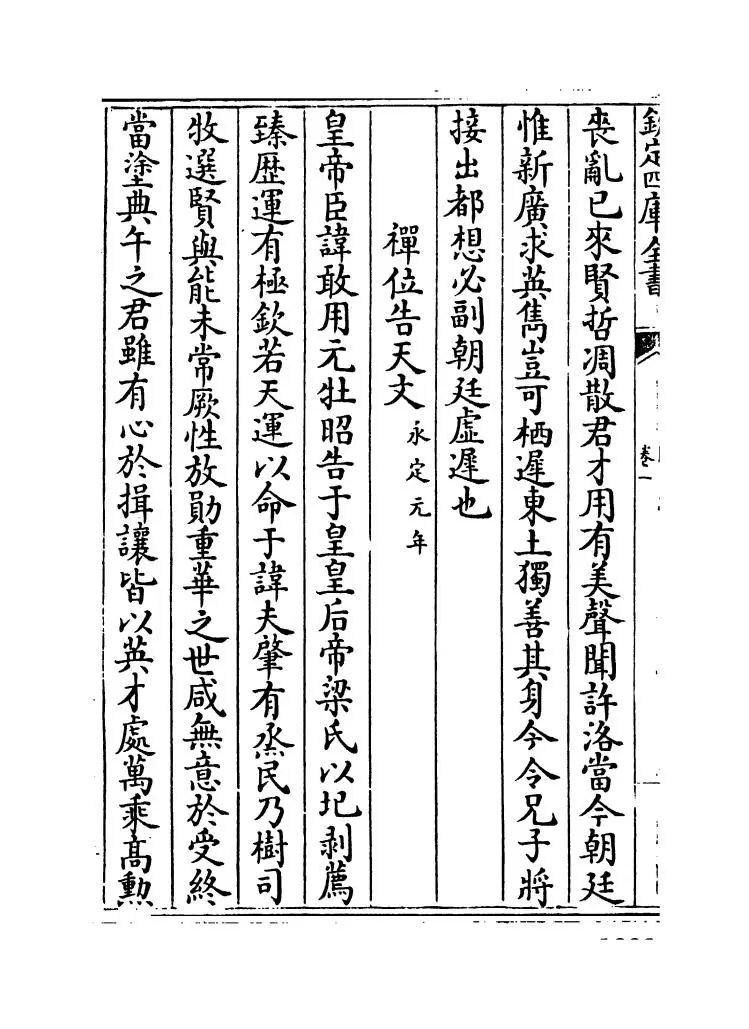 欽定四庫全書
卷一
喪亂已來賢哲凋散君才用有美聲聞許洛當今朝廷
惟新廣求英雋豈可栖遲東土獨善其身今令兄子將
接出都想必副朝廷虛遲也
禪位告天文永定元年
皇帝臣諱敢用元牡昭告于皇皇后帝梁氏以圮剥薦
臻歴運有極欽若天運以命于諱夫肇有烝民乃樹司
牧選賢與能未常厥性放勛重華之世咸無意於受終
當塗典午之君雖有心於揖讓皆以英才處萬乘高勲